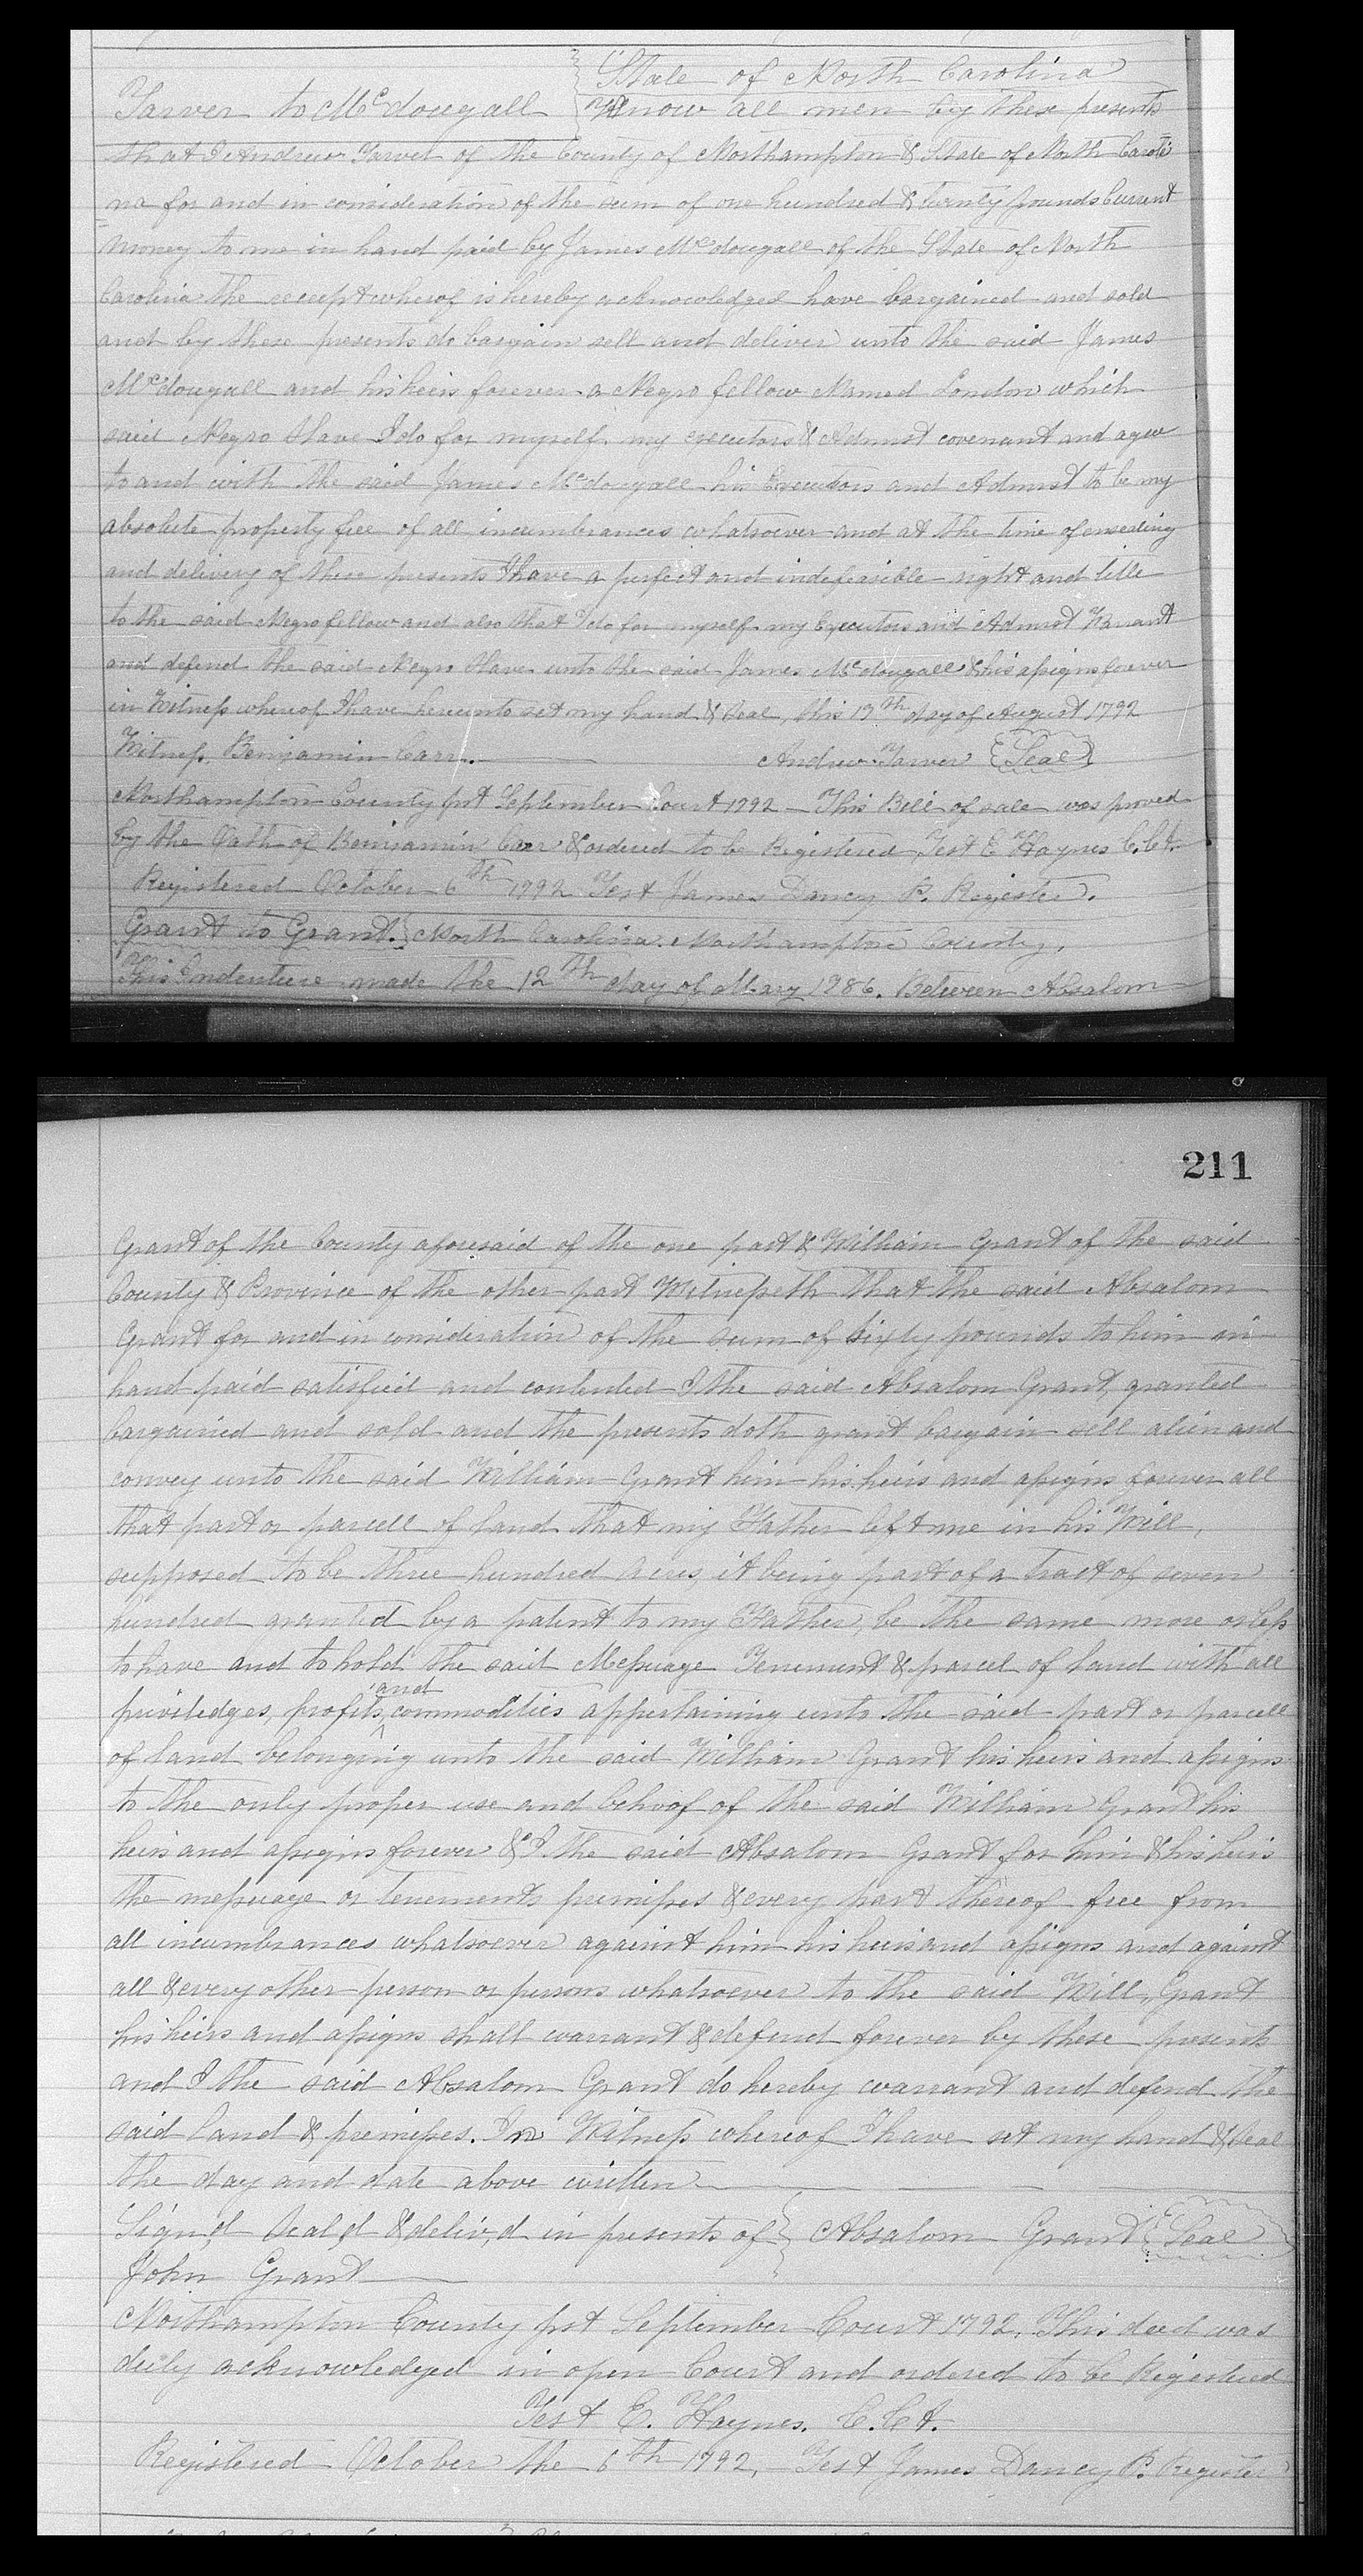 State of North Carolina
Tarver to McDougall } Know all men by these presents
that I Andrew Tarver of the County of Northampton & State of North Caroli
na for and in consideration of the sum of one hundred & twenty pounds Current
money to me in hand paid by James Mcdougall of the State of North
Carolina the receept wherof is hereby acknowledged have bargained and sold
and by these presents do bargain sell and deliver unto the said James
Mcdougall and his heirs forever a Negro fellow Named London which
said Negro Slave I do for myself my executors & Admrst covenant and agee
to and with the said James Mcdougall his Executors and Admrst to be my
absolute property free of all incumbrances whatsoever and at the time of ensealing
and delivery of these presents I have a perfect and indefeasible right and title
to the said Negro fellow and also that I do for myself my Executors and Admrst Warrant
and defend the said Negro Slave unto the said James Mcdougall & his assigns forever
in Witness whereof I have hereunto set my hand & Seal, this 19th day of August 1792
Witness, Benjamin Carr. Andrew Tarver {Seal}
Northampton County sst September Court 1792 - This Bill of sale was proved
by the Oath of Benjamin Carr & ordered to be Registered Test E Haynes C.Ct.
Registered October 6th 1792 Test James Dancy P. Register.
Grant to Grant. } North Carolina. Northampton County,
This Indenture made the 12th day of May 1786. Between Absalom
211
Grant of the County aforesaid of the one part & William Grant of the said
County & Province of the other part Witnesseth that the said Absalom
Grant for and in consideration of the sum of Sixty pounds to him in
hand paid satisfied and contented I the said Absalom Grant, granted
bargained and sold and the presents doth grant bargain sell alien and
convey unto the said William Grant him his heirs and assigns forever all
that part or parcell of land that my Father left me in his Will,
supposed to be three hundred acres, it being part of a tract of seven
hundred granted by a patent to my Father, be the same more or less
to have and to hold the said Messuage Tenement & parcel of land with all
priviledges, profits, and commodities appertaining unto the said part or parcell
of land belonging unto the said William Grant his heirs and assigns
to the only proper use and behoof of the said William Grant his
heirs and assigns forever & I. the said Absalom Grant for him & his heirs
the messuage or tenements premises & every part thereof free from
all incumbrances whatsoever against him his heirs and assigns and against
all & every other person or persons whatsoever to the said Will,, Grant
his heirs and assigns shall warrant & defend forever by these presents
and I the said Absalom Grant do hereby warrant and defend the
said land & premises. In Witness whereof I have set my hand & Seal
the day and date above written
Sign,d Seal,d & deliv,d in presents of } Absalom Grant {Seal}
John Grant
Northampton County sst September Court 1792. This deed was
duly acknowledged in open Court and ordered to be Registered
Test E. Haynes. C.Ct.
Registered October the 6th 1792, - Test James Dancy P. Register